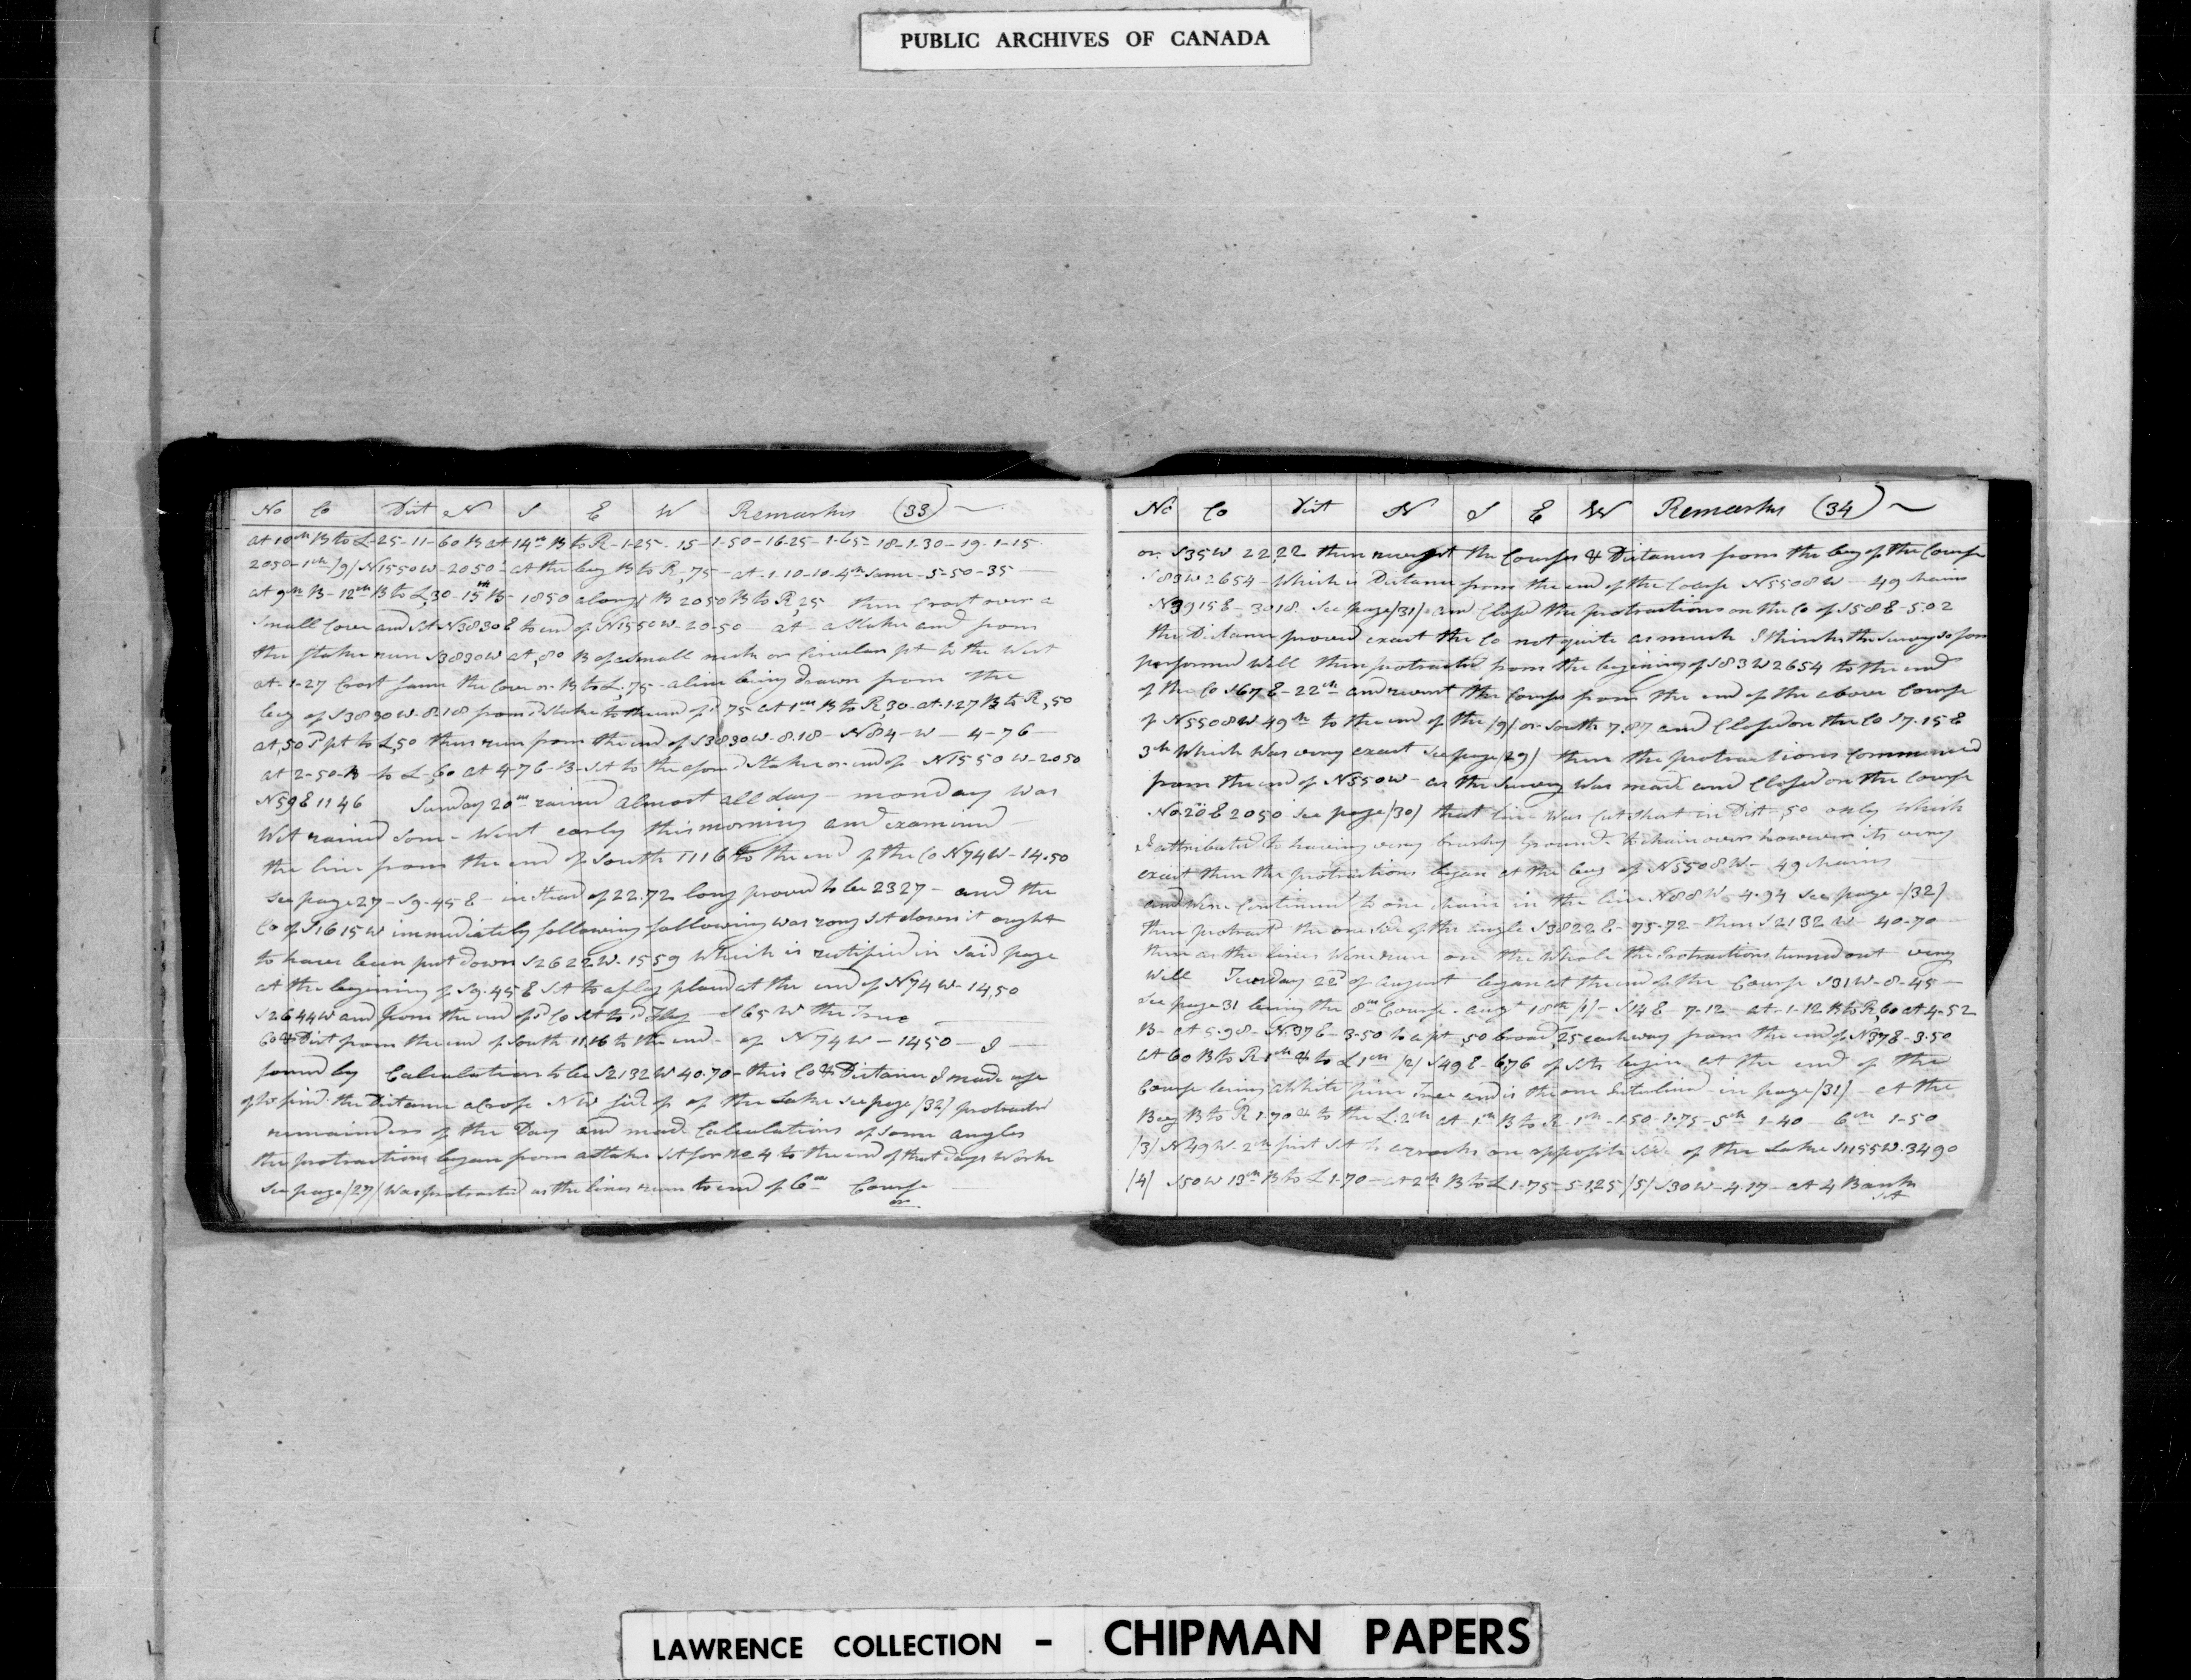 PUBLIC ARCHIVES OF CANADA
No Co Dist N S E W Remarks (33)
at 10th B to L-25-11-60 B at 14th B to R-1-25-15-1-50-16-25-1-65-18-1-30-19-1-15
2050-1ch /9/ N1550W-2050 at the beg B to R,75-at-1-10-10-4th same-5-50-35
at 9th B-12th B to L,30-15th B-1850 along B 2050 B to R,25 then Crost over a
Small Cove and St N3830E to end of N1550W-20-50 at a Stake and from
the stake run S3830W at,80 B of a Small neck or Circular pt to the West
at-1-27 Crost same the Cove or B to L,75-a line being drawn from the
beg of S3830W-8.18 from sd Stake to the end of sd 75 at 1ch B to R,30-at-1-27 B to R,50
at,50 sd pt to L,50 then run from the end of S3830W-8.18-N84-W-4-76
at 2-50-B-to L-,60 at 4-76-B-St to the afore sd Stake or end of N1550W-2050
N59E 1146 Sunday 20th rained almost all day-monday was
Wet rained some-Went early this morning and examined
the line from the end of South 1116 to the end of the Co N74W-14.50
see page 27-S9.45E-in Stead of 22.72 long proved to be 2327-and the
Co of S1615W immediately following following was rong St down it ought
to have been put down S2622W-1559 Which is rectified in Said page
at the begining of S9.45E St to a flag placed at the end of N74W-14,50
S2644W and from the end of sd Co St to sd Flag-S65W the True
Co & Dist from the end of South 11.16 to the end-of N74W-1450-I
found by Calculation to be S2132W 40.70-this Co & Distance I made use
of to find the Distance across NW side of of the Lake see page /32/ protracted
remainder of the Day and made Calculations of some angles
the protractions began from a stake St for No 4 to the end of that days Worke
see page /27/ Was protracted as the lines run to end of 6th Course
or
No Co Dist N S E W Remarks (34)
or S35W 22,22 then the Courses & Distances from the beg of the Course
S83W2654-Which is Distance from the end of the Course N5508W-49 chains
N3915E-3018. See page /31/ and Close the protractions on the Co of S58E-502
the Distance proved exact the Co not quite as much I think the Survey so far
performed Well then protracted from the begining of S83W2654 to the end
of the Co S67E-22ch and the Course from the end of the above Course
of N5508W-49ch to the end of the /9/ or South 7,87 and Closed on the Co S7.15E
3ch Which Was very exact See page /29/ then the protractions Commenced
from the end of N550W-as the Survey Was made and Closed on the Course
No. 20E2050 See page /30/ that line Was Cut Short in Dist-,50 only Which
I attributed to having very brushy Ground-to chain over however its very
exact then the protractions began at the beg of N5508W-49 chains
and Were Continued to one chain in the line N88W-4.94 see page-/32/
then protract the one side of the angle S3822E-75-72-then S2132W-40-70
then as the lines Were run on the Whole the Protractions turned out very
Well Tuesday 22d of August began at the end of the Course S31W-8-45
see page 31 being the 8th Course-augt 18th /1/-S14E-7-12-at-1-12 B to R,60 at 4-52
B-at 5.98-N37E-3-50 to a pt,50 broad,25 each way from the end of N37E-3-50
at 60 B to R 1ch & to L 1ch /2/ S49E-676 of Sts begin at the end of the
Course being a White pine Tree and is the one in page /31/-at the
Beg B to R 1-70 & to the L-2ch at 1ch B to R 1ch-150-1-75-5ch 1-40-6ch 1-50
/3/ N49W-2ch first St to a rock on opposite side of the Lake S1155W.3490
/4/ S50W 13ch B to L 1-70-at 2ch B to L 1-75-5-125 /5/ S30W-4.17-at 4 Bank
St
LAWRENCE COLLECTION - CHIPMAN PAPERS